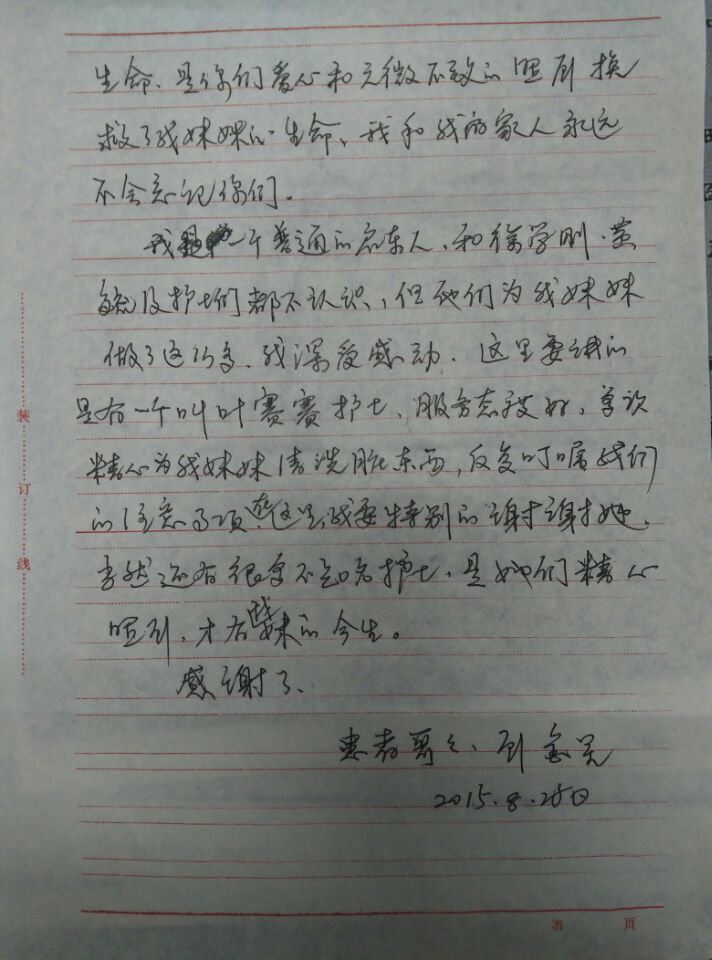 生命、是你们爱心和无微不致的照顾换
救了我妹妹的生命、我和我的家人永远
不会忘记你们。
我是一个普通的启东人、和徐学刚、黄
及护士们都不认识、但他们为我妹妹
做了这巧多、我深受感动. 这里要说的
是有一个叫叶赛赛护士、服务态度好,
精心为我妹妹清洗脏东西, 反复叮嘱我们
的注意事项、在这里我要特别的谢谢她、
当然还有很多不知名护士、是她们精心
照顾、才有我妹的今生。
感谢了、
患者哥哥、
2015.8.25日
装
订
线
第 页